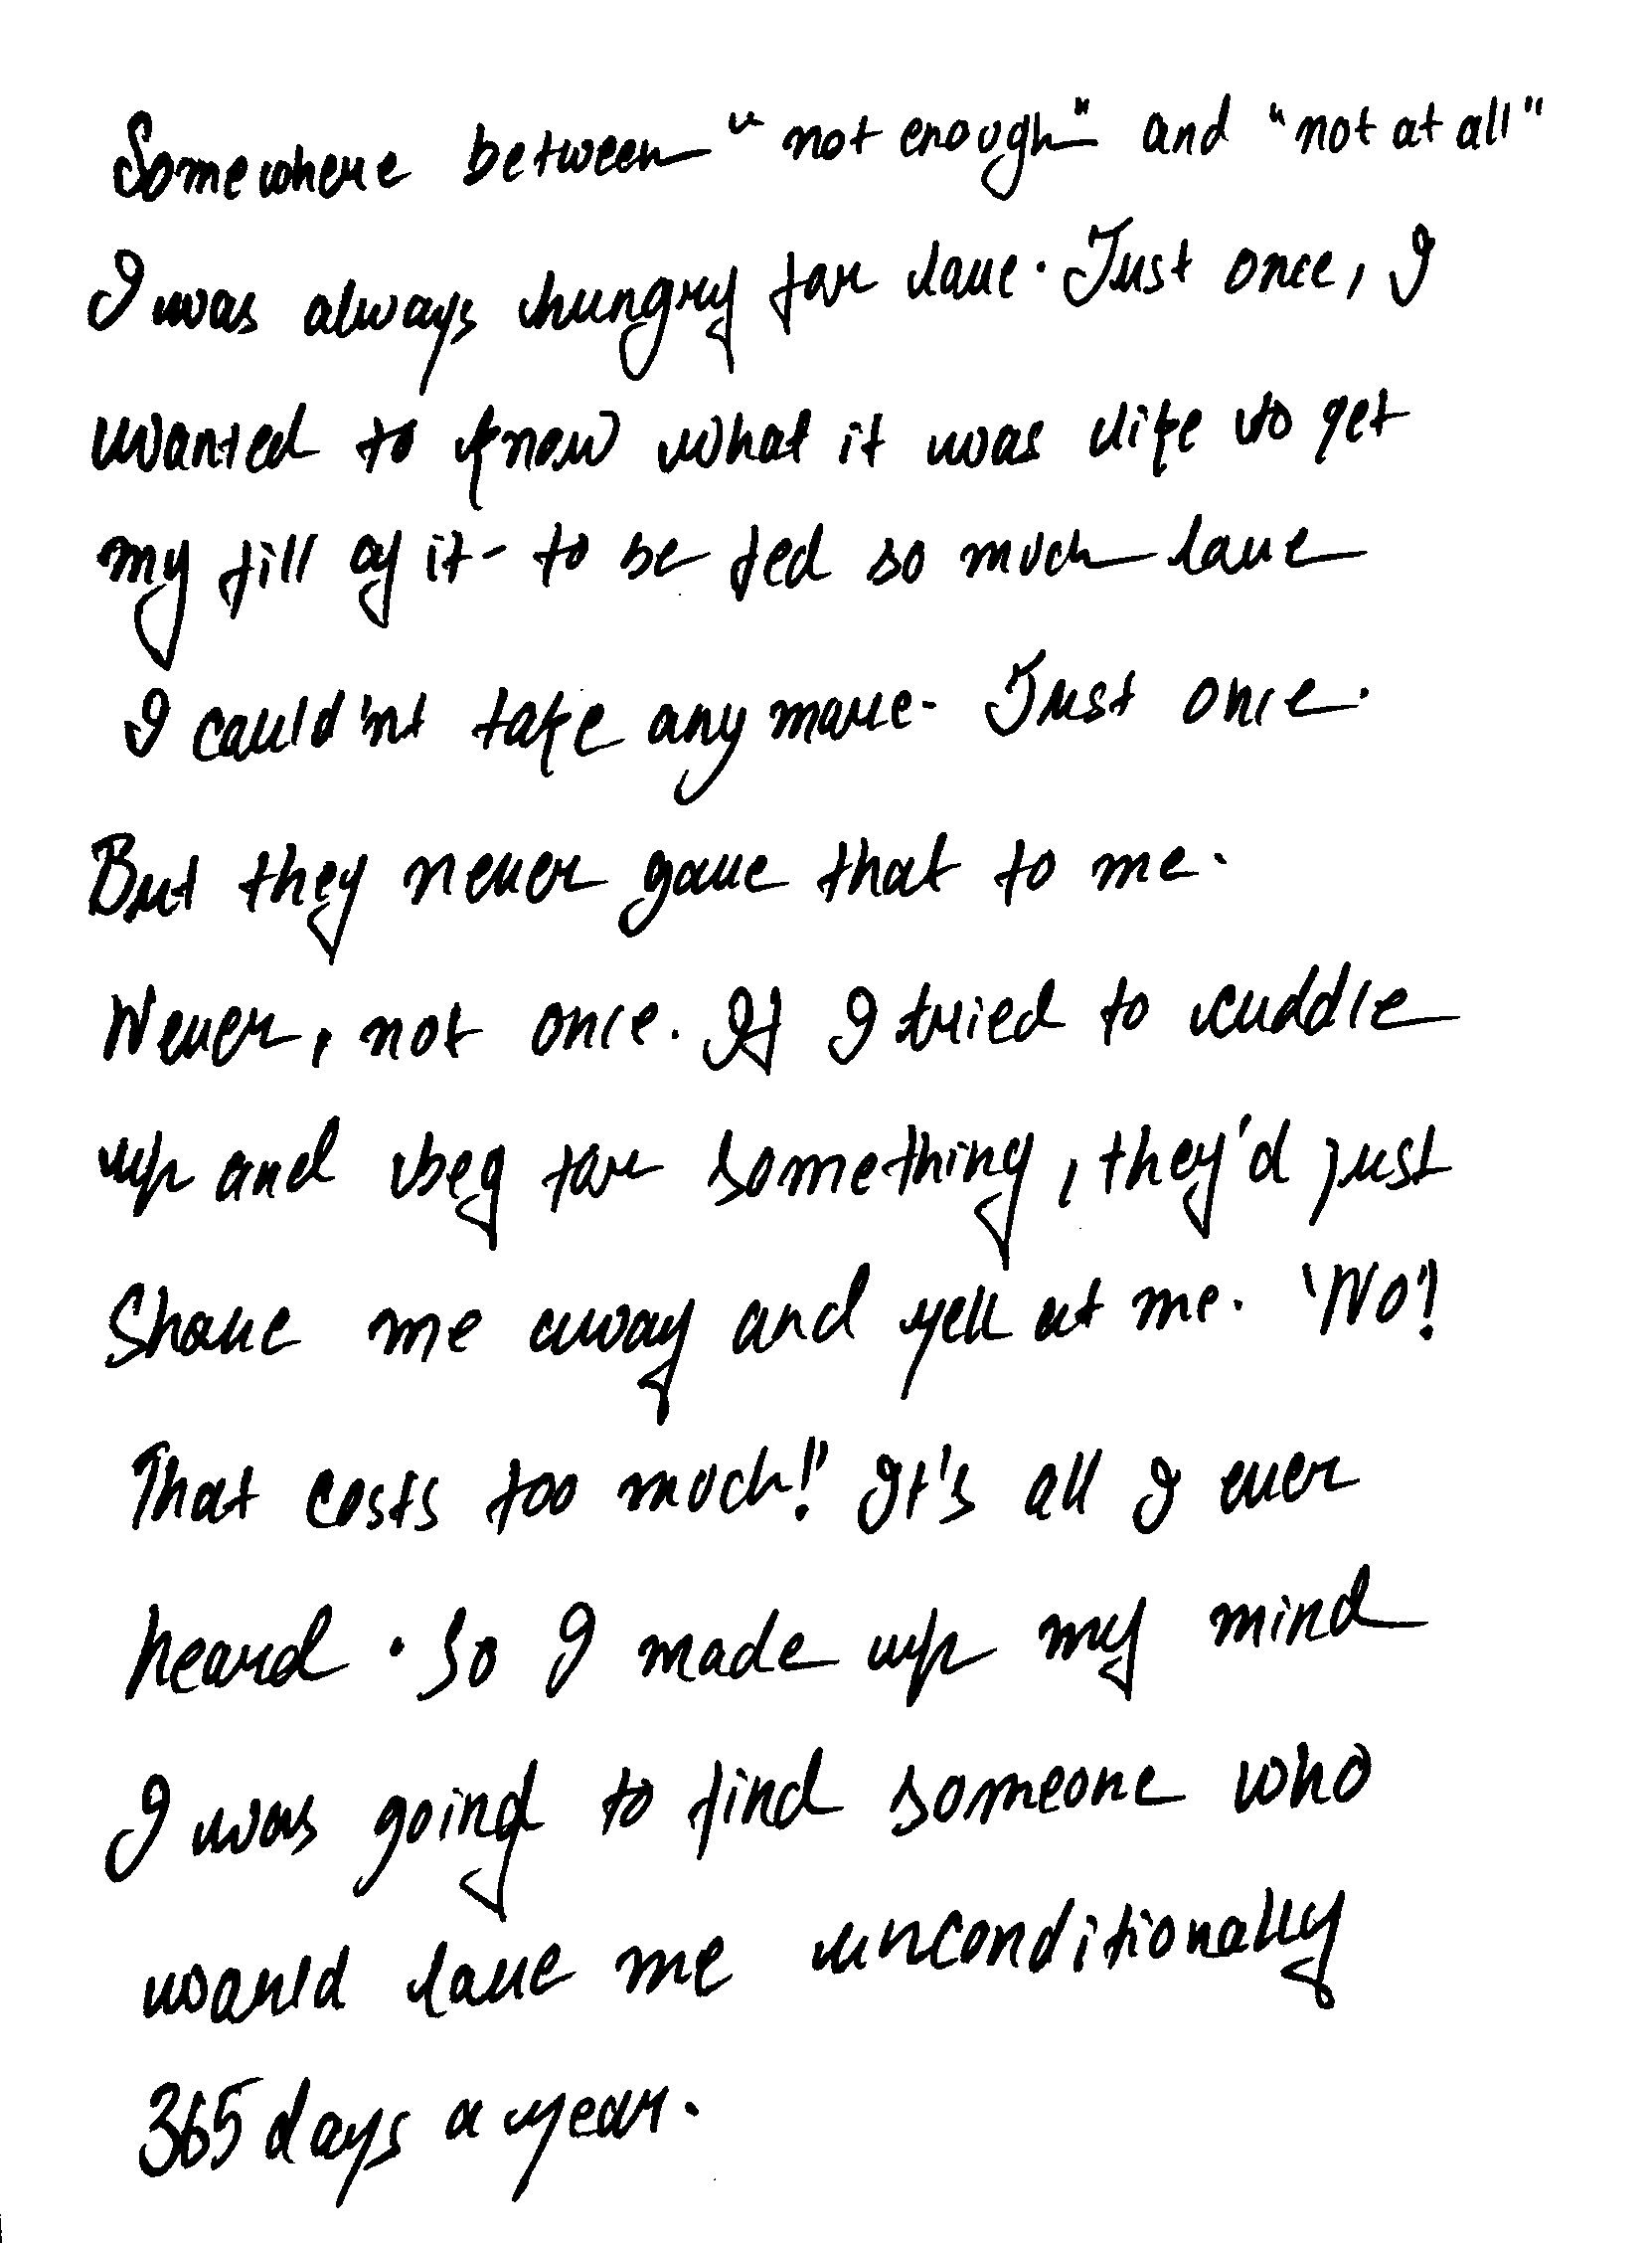 Somewhere between "not enough" and "not at all"
I was always hungry for love. Just once, I
wanted to know what it was like to get
my fill of it - to be fed so much love
I could'nt take any more. Just once.
But they never gave that to me.
Never, not once. If I tried to cuddle
up and beg for something, they'd just
Shove me away and yell at me. 'No!
That costs too much!" It's all I ever
heard. So I made up my mind
I was going to find someone who
would love me unconditionally
365 days a year.